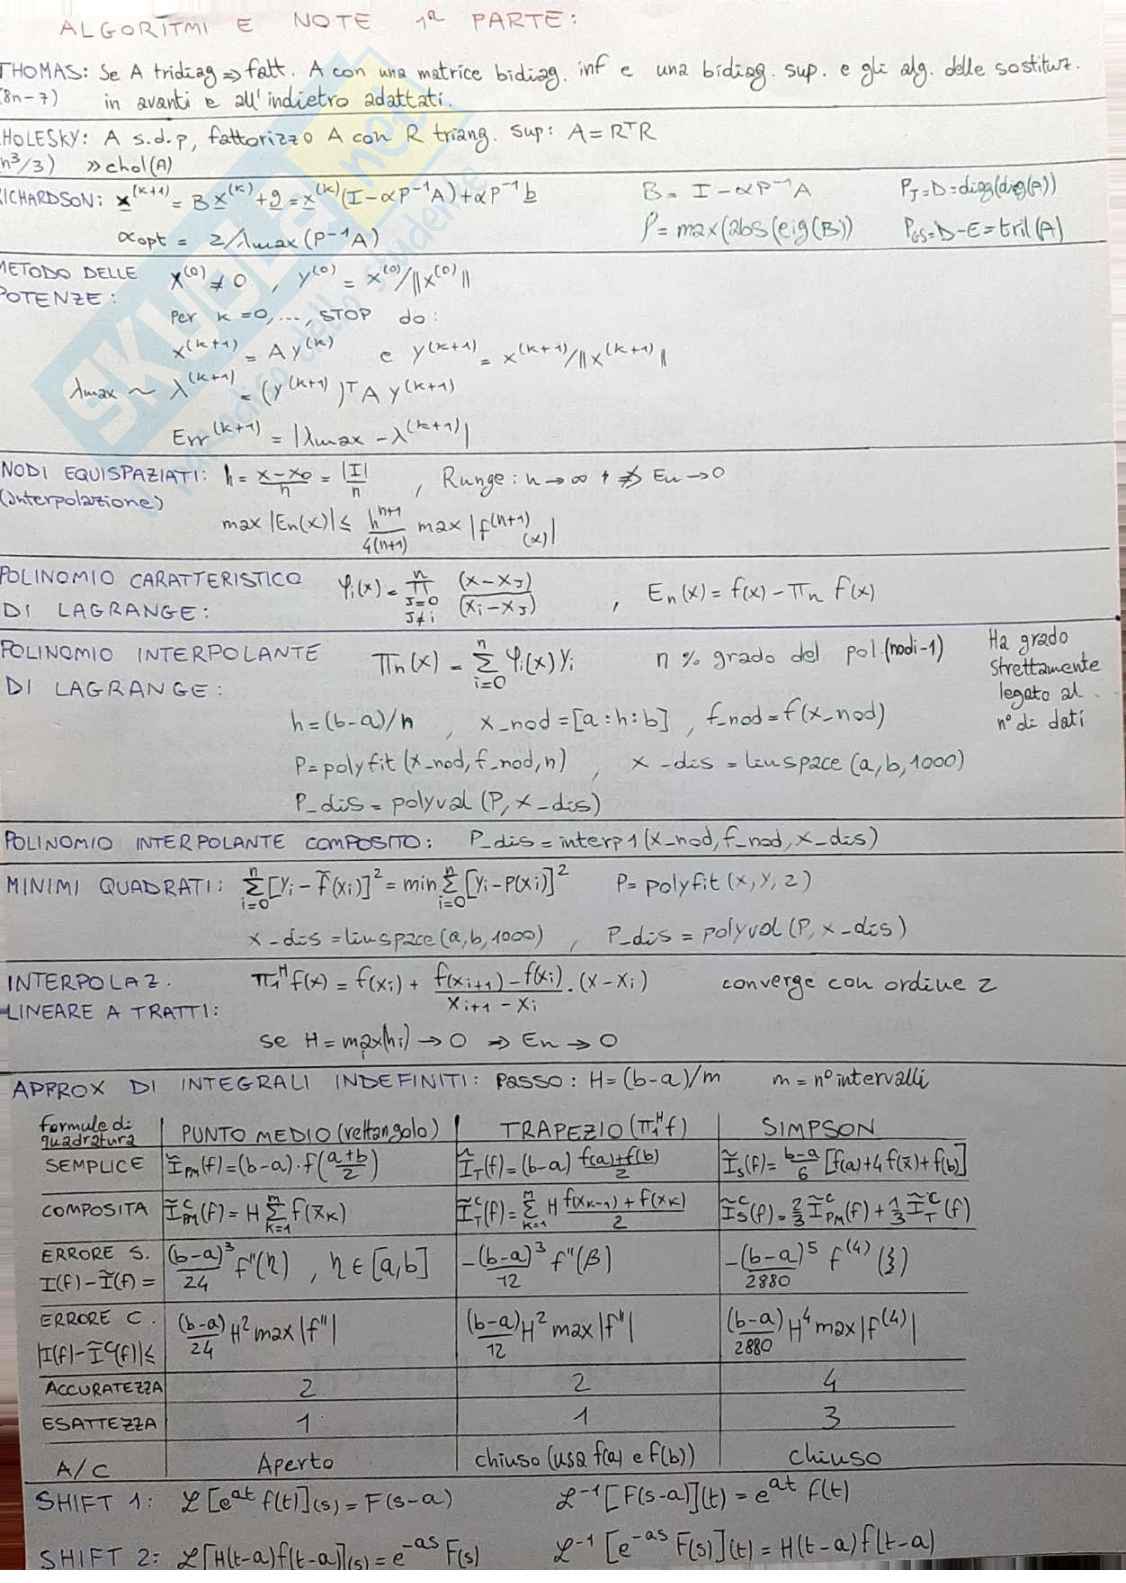 ALGORITMI E NOTE 1ª PARTE:
THOMAS: Se A tridiag ⇒ fatt. A con una matrice bidiag. inf e una bidiag. sup. e gli alg. delle sostituz.
(8n-7) in avanti e all'indietro adattati.
HOLESKY: A s.d.p, fattorizzo A con R triang. sup: A = RᵀR
n³/3) >>chol(A)
ICHARDSON: x^(k+1) = Bx^(k) + g = x^(k)(I-αP⁻¹A) + αP⁻¹b B = I - αP⁻¹A P_J = D = diag(diag(A))
α_opt = 2/λmax(P⁻¹A) ρ = max(abs(eig(B)) P_GS = D-E = tril(A)
METODO DELLE x^(0) ≠ 0 , y^(0) = x^(0)/||x^(0)||
POTENZE: Per k=0,...,STOP do:
x^(k+1) = Ay^(k) e y^(k+1) = x^(k+1)/||x^(k+1)||
λmax ~ λ^(k+1) = (y^(k+1))ᵀAy^(k+1)
Err^(k+1) = |λmax - λ^(k+1)|
NODI EQUISPAZIATI: h = (x-x₀)/n = |I|/n , Runge: n→∞ ⇏ En→0
(Interpolazione)
max |En(x)| ≤ h^(n+1)/4(n+1) max |f^(n+1)(x)|
POLINOMIO CARATTERISTICO φi(x) = ∏_{J=0, J≠i}^{n} (x-xJ)/(xi-xJ) , En(x) = f(x) - Πn f(x)
DI LAGRANGE:
POLINOMIO INTERPOLANTE Πn(x) = Σ_{i=0}^{n} φi(x)yi n % grado del pol (nodi-1) Ha grado
DI LAGRANGE: strettamente
legato al
h=(b-a)/n , x_nod=[a:h:b] , f_nod=f(x_nod) n° di dati
P=polyfit(x_nod,f_nod,n) , x_dis=linspace(a,b,1000)
P_dis=polyval(P,x_dis)
POLINOMIO INTERPOLANTE COMPOSITO: P_dis=interp1(x_nod,f_nod,x_dis)
MINIMI QUADRATI: Σ_{i=0}^{n} [yi - f̃(xi)]² = min Σ_{i=0}^{n} [yi - P(xi)]² P=polyfit(x,y,2)
x_dis=linspace(a,b,1000) , P_dis=polyval(P,x_dis)
INTERPOLAZ. Π₁ᴴf(x) = f(xi) + (f(xi+1) - f(xi))/(xi+1 - xi) · (x-xi) converge con ordine 2
LINEARE A TRATTI:
se H = max(hi) → 0 ⇒ En → 0
APPROX DI INTEGRALI INDEFINITI: Passo: H=(b-a)/m m = n° intervalli
formule di quadratura | PUNTO MEDIO (rettangolo) | TRAPEZIO (Π₁ᴴf) | SIMPSON
SEMPLICE | Ĩ_PM(f) = (b-a)·f((a+b)/2) | Ĩ_T(f) = (b-a) (f(a)+f(b))/2 | Ĩ_S(f) = (b-a)/6 [f(a)+4f(x̄)+f(b)]
COMPOSITA | Ĩᶜ_PM(f) = H Σ_{k=1}^{m} f(x̄k) | Ĩᶜ_T(f) = Σ_{k=1}^{m} H (f(xk-1)+f(xk))/2 | Ĩᶜ_S(f) = 2/3 Ĩᶜ_PM(f) + 1/3 Ĩᶜ_T(f)
ERRORE S. I(f)-Ĩ(f) = | (b-a)³/24 f''(η) , η∈[a,b] | -(b-a)³/12 f''(β) | -(b-a)⁵/2880 f^(4)(ξ)
ERRORE C. |I(f)-Ĩᶜ(f)| ≤ | (b-a)/24 H² max|f''| | (b-a)/12 H² max|f''| | (b-a)/2880 H⁴ max|f^(4)|
ACCURATEZZA | 2 | 2 | 4
ESATTEZZA | 1 | 1 | 3
A/C | Aperto | chiuso (usa f(a) e f(b)) | chiuso
SHIFT 1: ℒ[e^(at) f(t)](s) = F(s-a) ℒ⁻¹[F(s-a)](t) = e^(at) f(t)
SHIFT 2: ℒ[H(t-a)f(t-a)](s) = e^(-as) F(s) ℒ⁻¹[e^(-as) F(s)](t) = H(t-a)f(t-a)